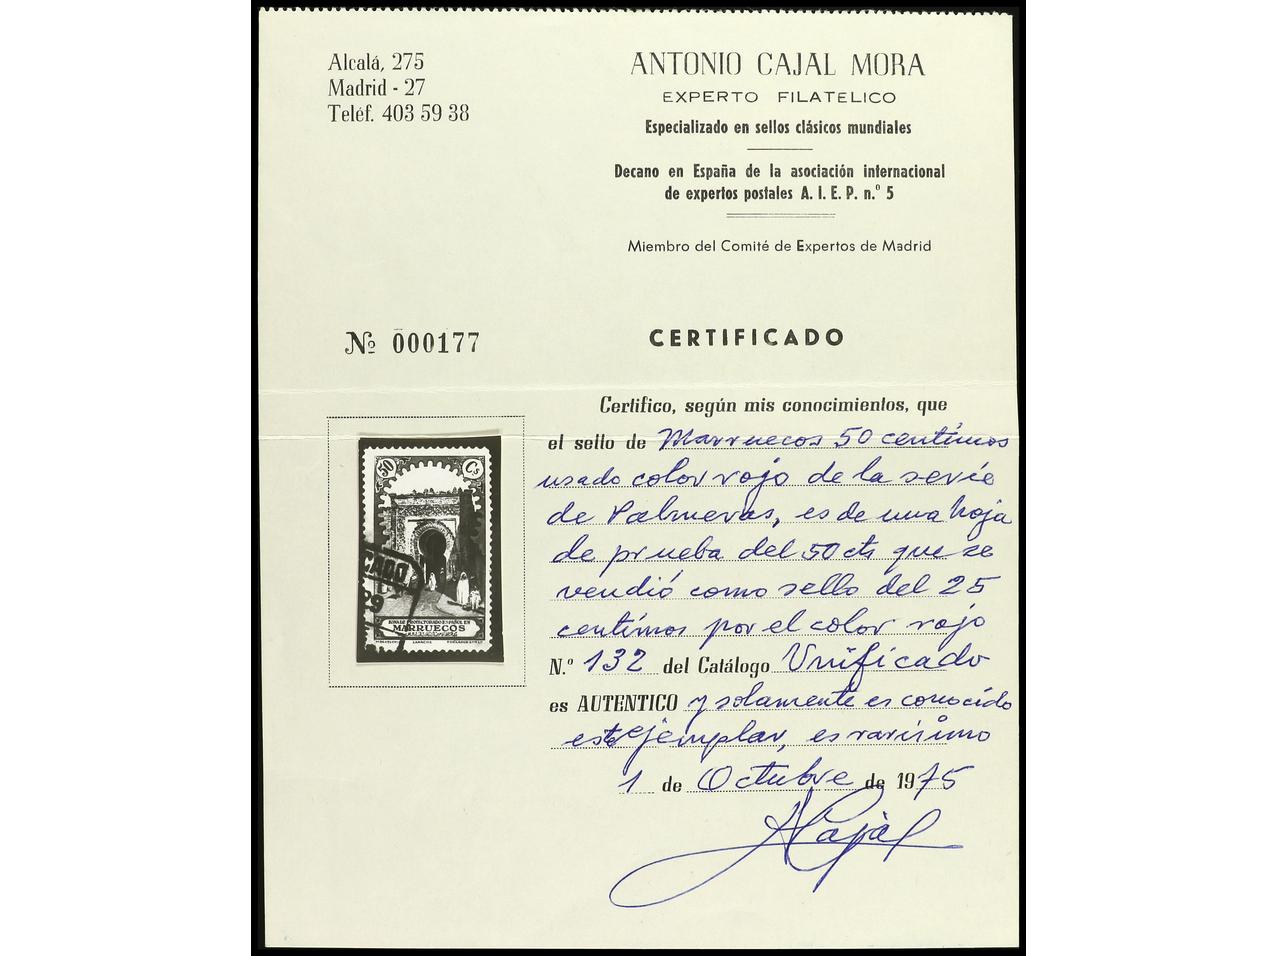 Alcalá, 275
Madrid - 27
Teléf. 403 59 38
ANTONIO CAJAL MORA
EXPERTO FILATELICO
Especializado en sellos clásicos mundiales
Decano en España de la asociación internacional
de expertos postales A. I. E. P. n.º 5
Miembro del Comité de Expertos de Madrid
Nº 000177
CERTIFICADO
Certifico, según mis conocimientos, que
el sello de Marruecos 50 centimos
usado color rojo de la serie
de Palmeras, es de una hoja
de prueba del 50 cts que se
vendió como sello del 25
centimos por el color rojo
N.º 132 del Catálogo Unificado
es AUTENTICO y solamente es conocido
este ejemplar, es rarisimo
1 de Octubre de 1975
A Cajal
50 Cs
ZONA DE PROTECTORADO ESPAÑOL EN
MARRUECOS
LARACHE